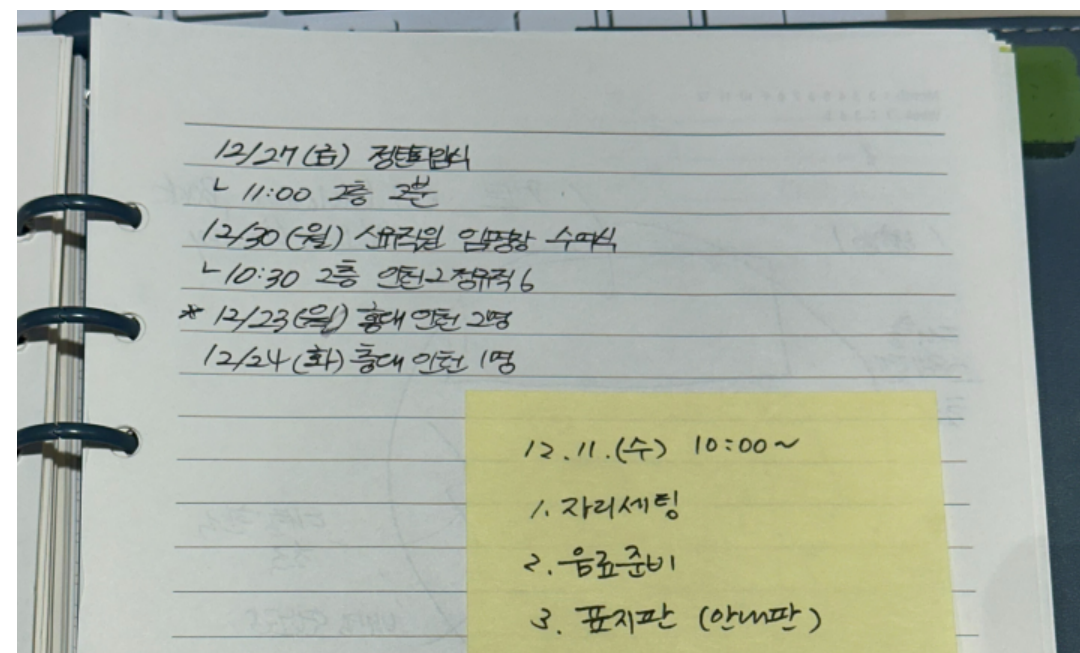 12/27(금) 정년퇴임식
ㄴ 11:00 2층 2분
12/30(월) 신규직원 임명장 수여식
ㄴ10:30 2층 인턴2 정규직6
* 12/23(월) 홍대 인턴 2명
12/24(화) 홍대 인턴 1명
12.11.(수) 10:00~
1. 자리세팅
2. 음료준비
3. 표지판 (안내판)